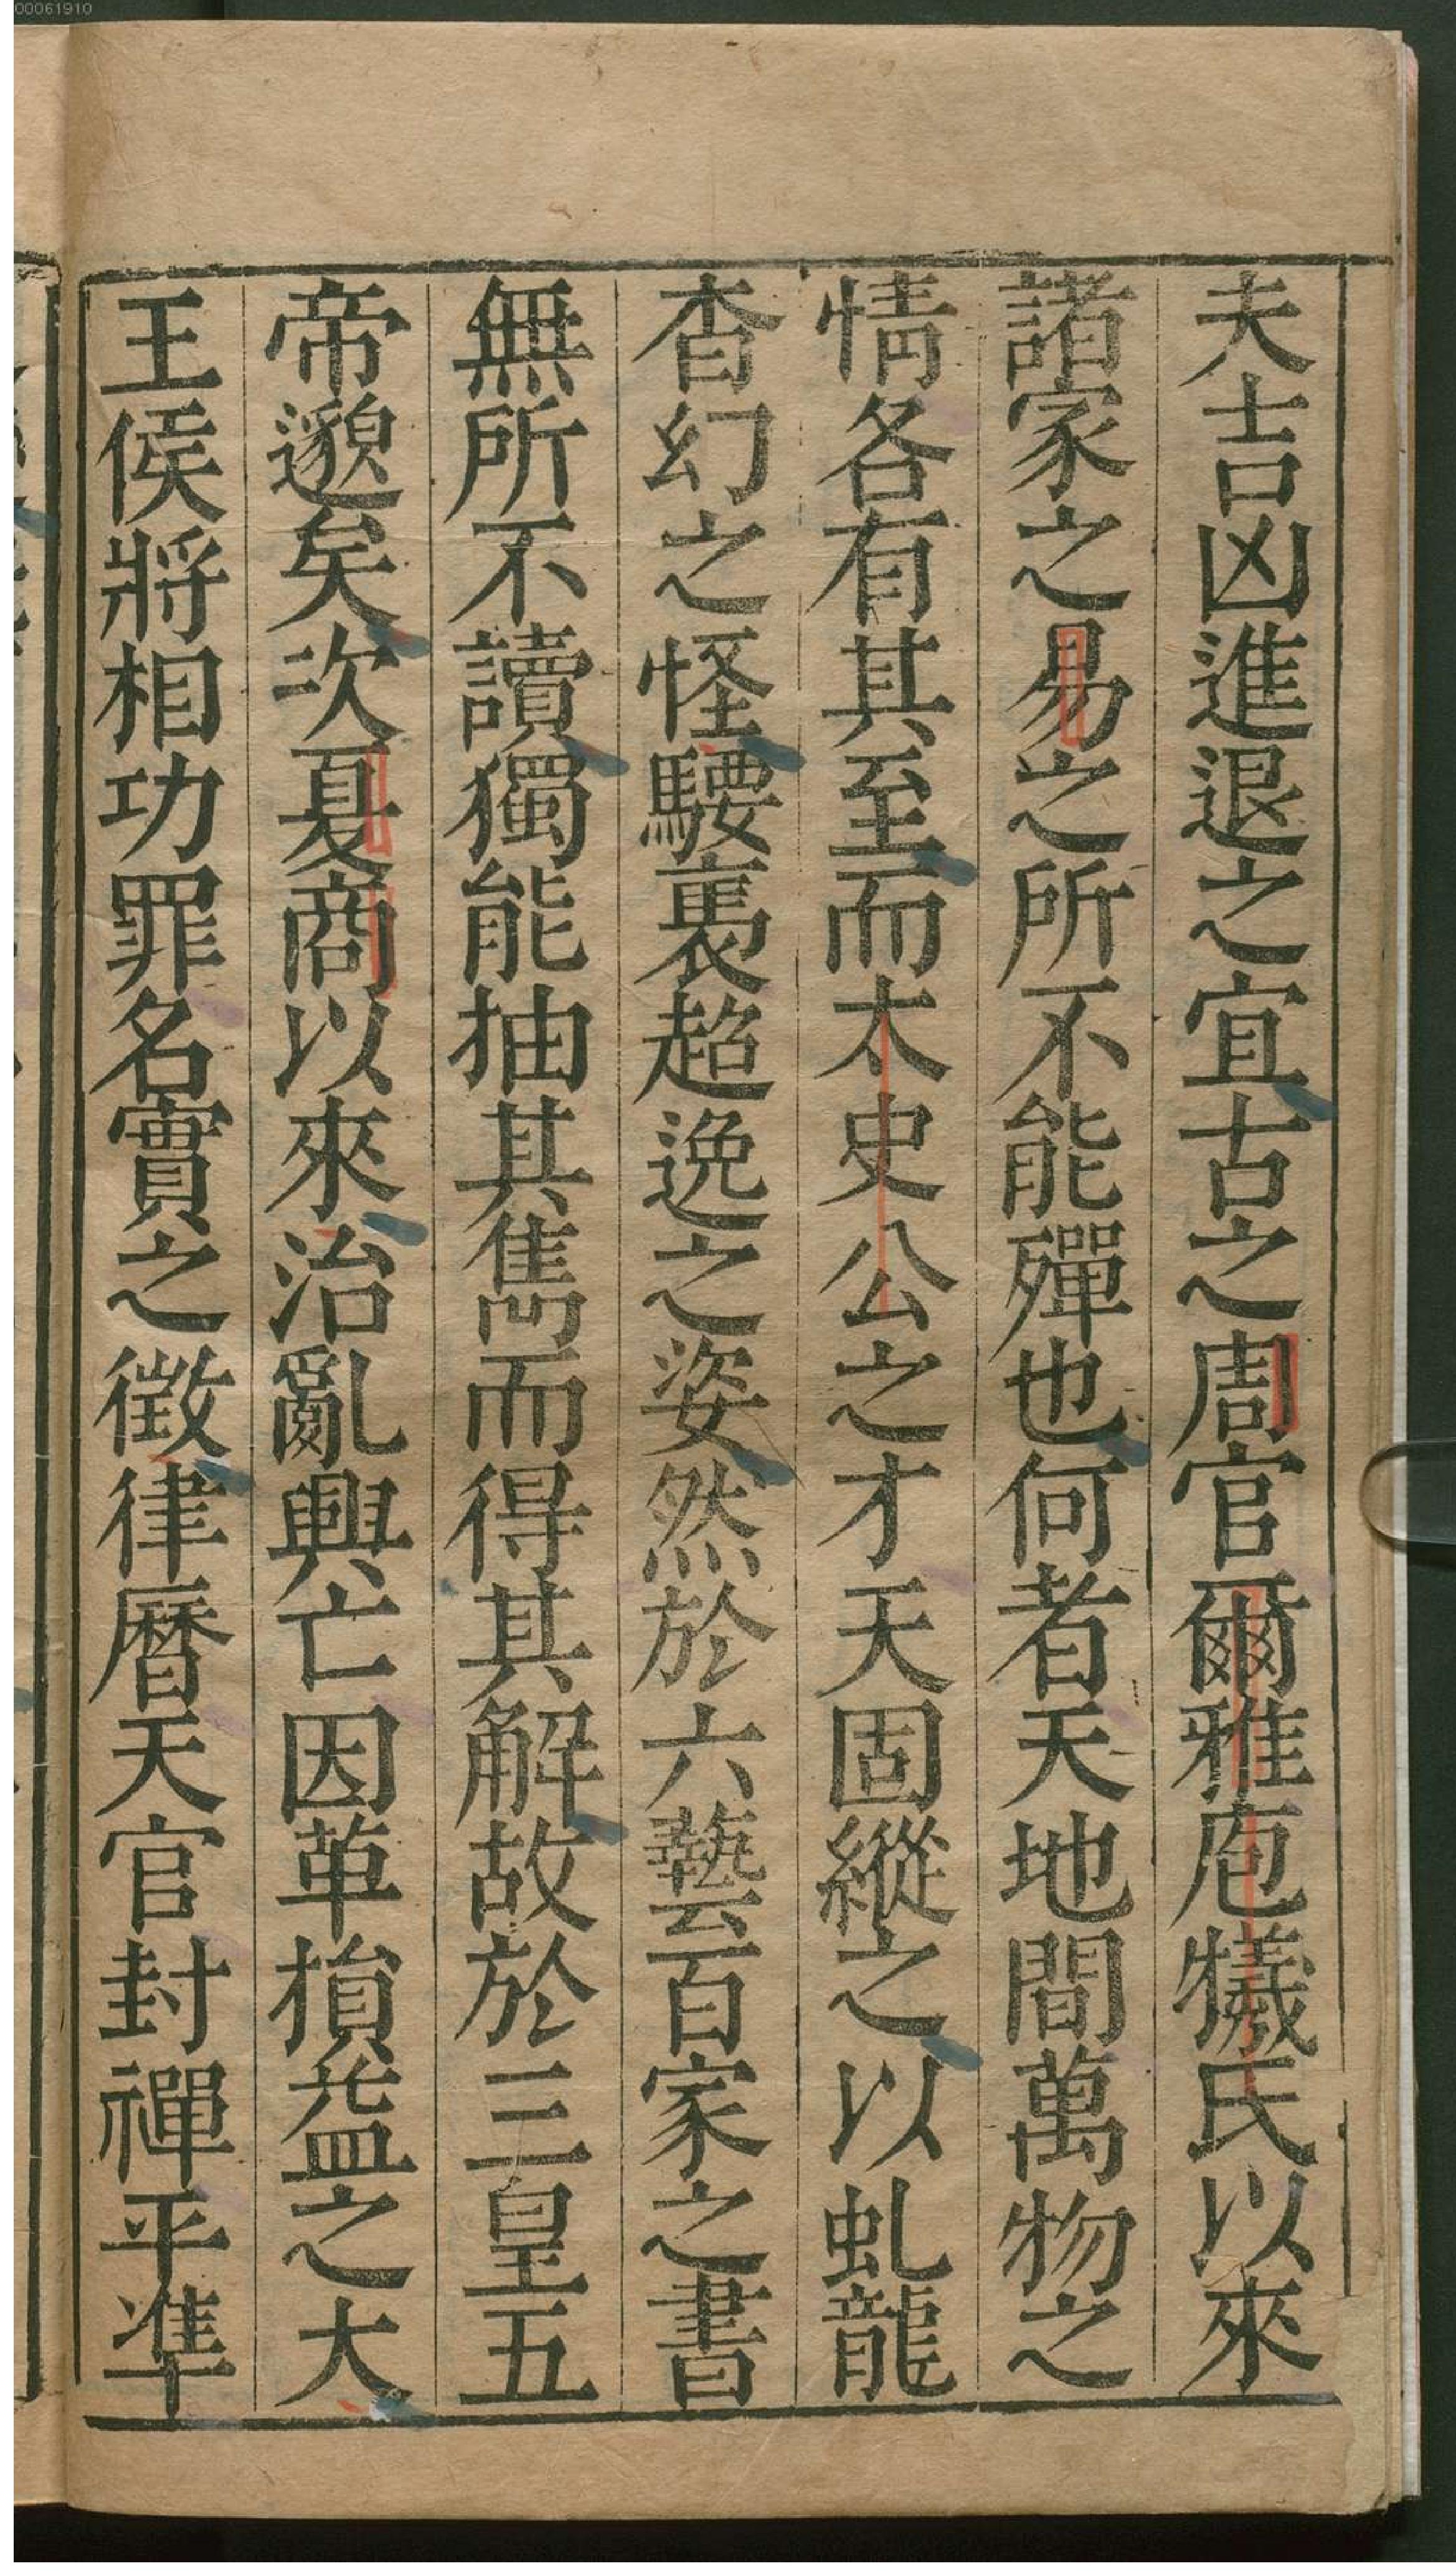 00061910
夫吉凶進退之宜古之周官爾雅庖犧氏以來
諸家之易之所不能殫也何者天地間萬物之
情各有其至而太史公之才天固縱之以虬龍
杳幻之怪騕褭超逸之姿然於六藝百家之書
無所不讀獨能抽其雋而得其解故於三皇五
帝邈矣次夏商以來治亂興亡因革損益之大
王侯將相功罪名實之徵律曆天官封禪平準